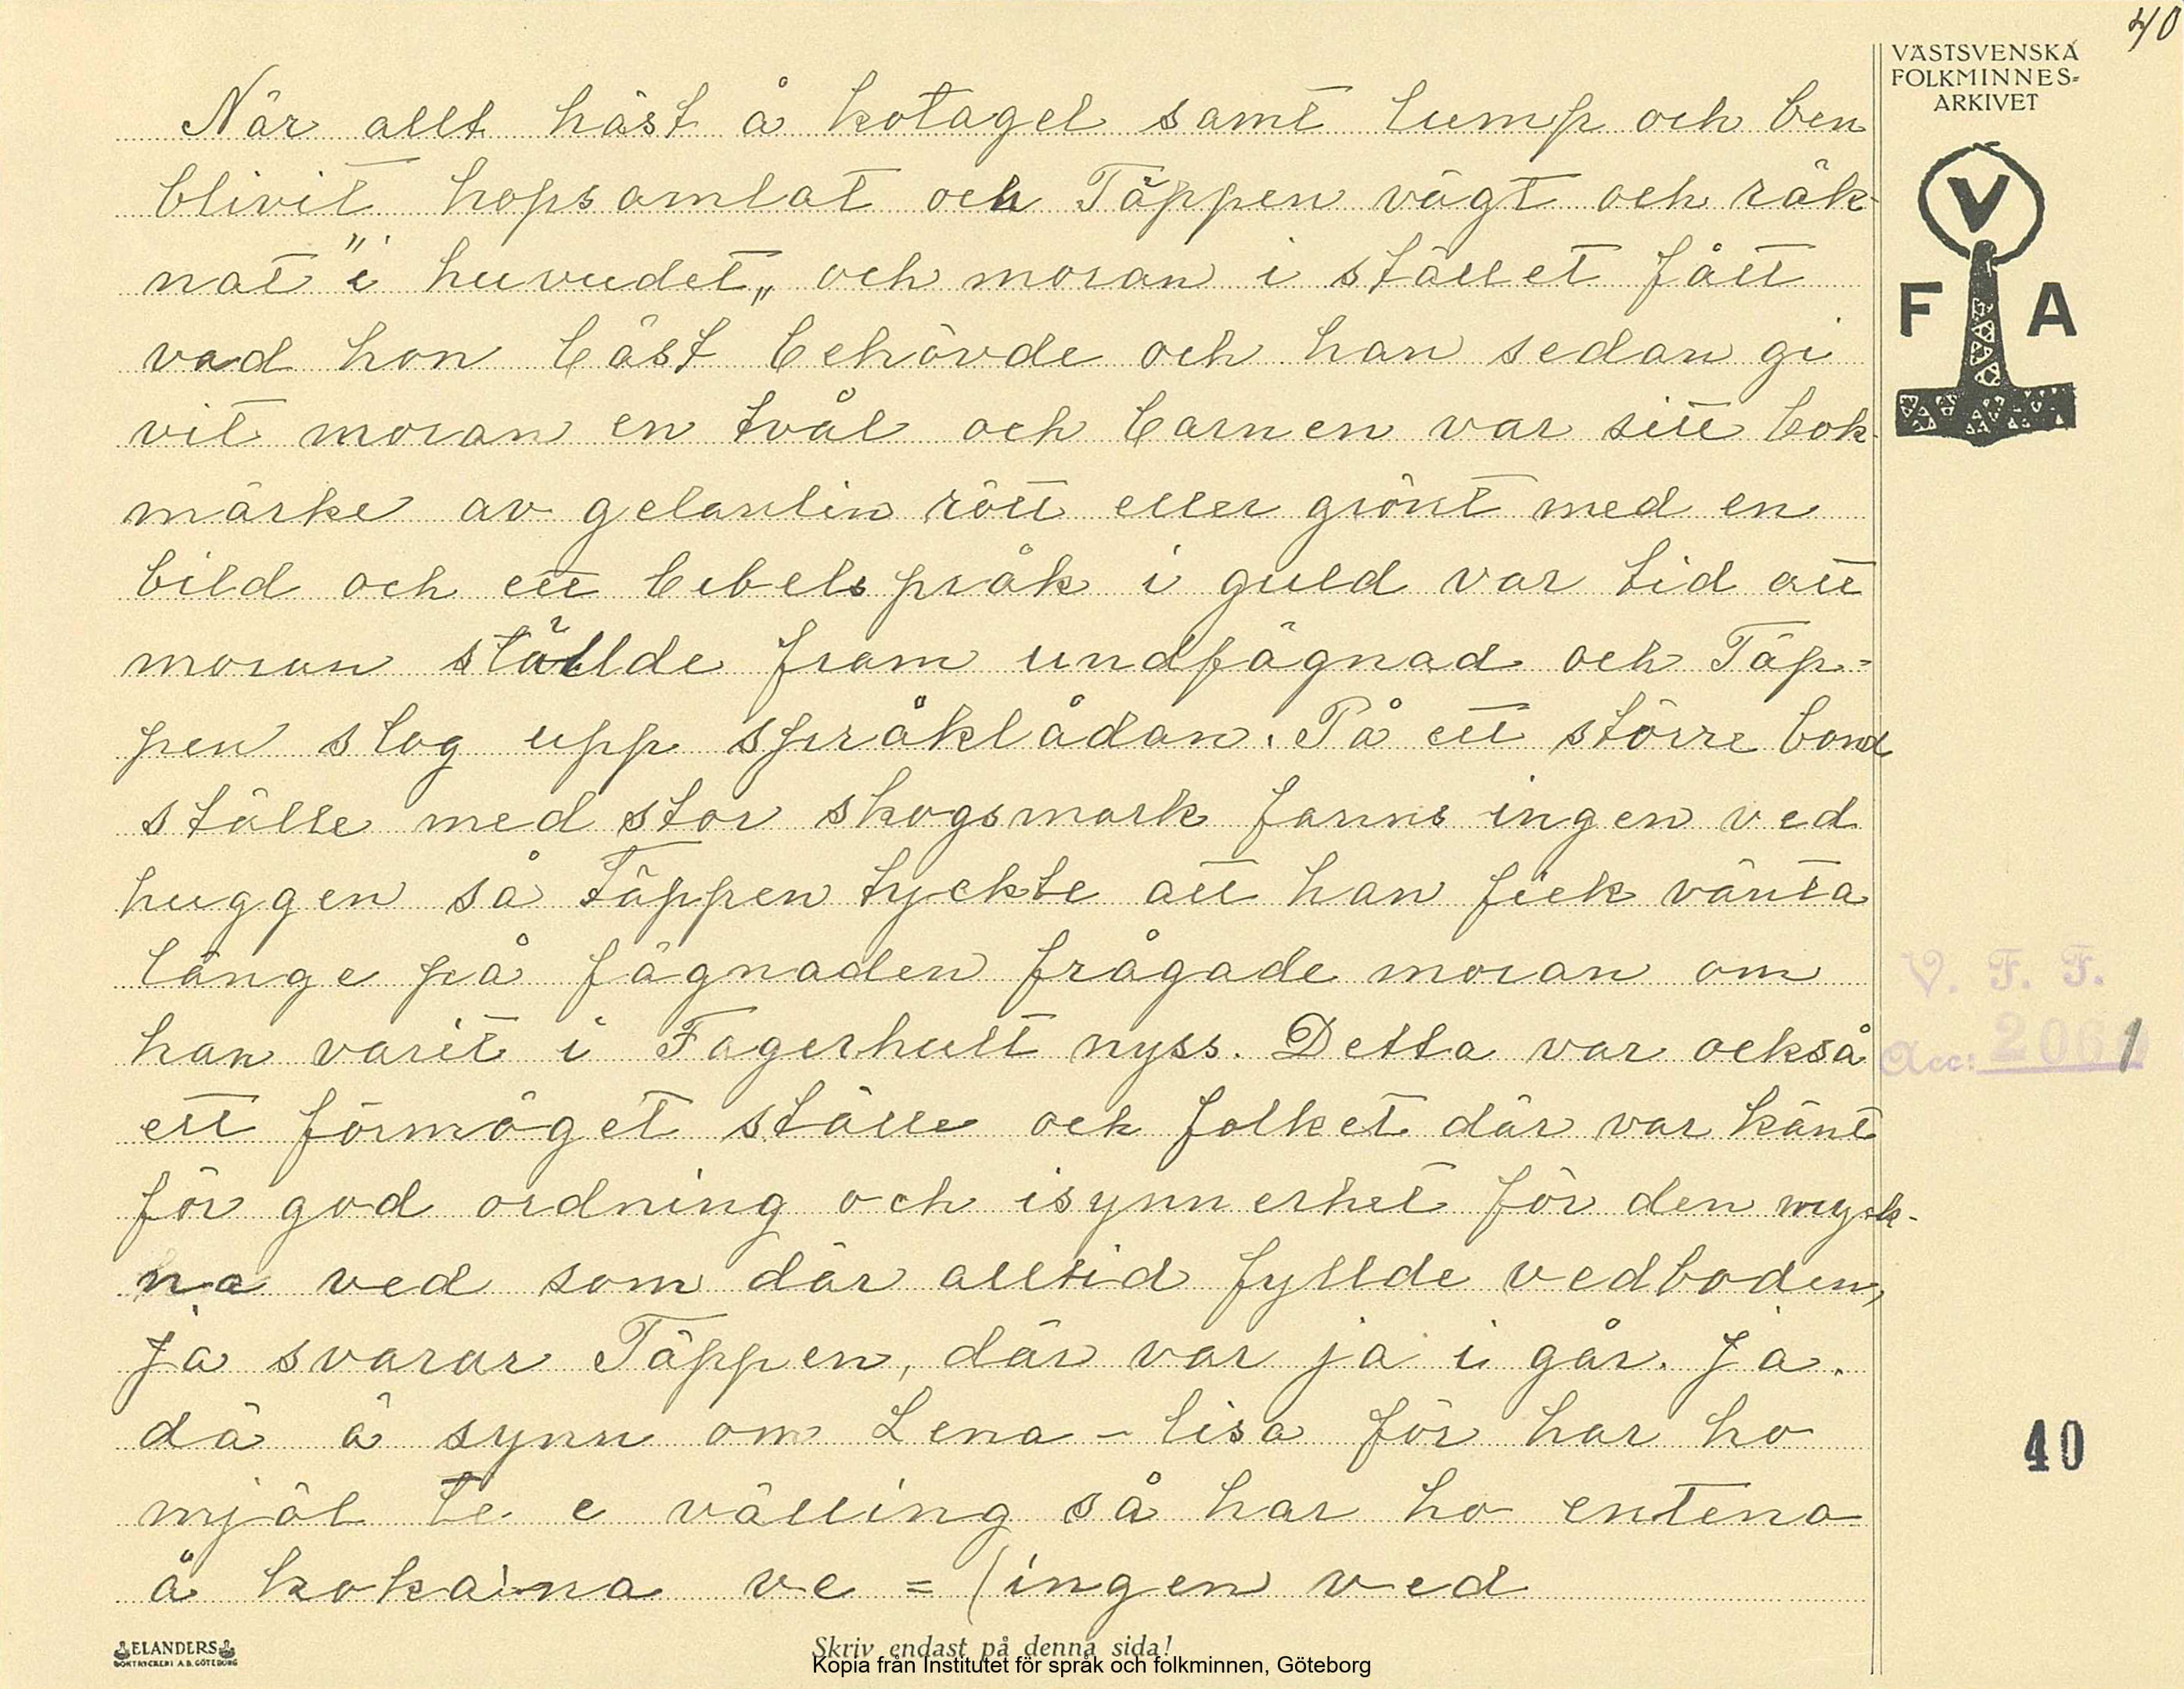 40
VÄSTSVENSKA
FOLKMINNES-
ARKIVET
V
F A
När allt häst å kotagel samt lump och ben
blivit hopsamlat och Täppen vägt och räk-
nat "i huvudet„ och moran i stället fått
vad hon bäst behövde och han sedan gi
vit moran en tvål och barnen var sitt bok-
märke av gelantin rött eller grönt med en
bild och ett bibelspråk i guld var tid att
moran ställde fram undfägnad och Täp=
pen slog upp språklådan. På ett större bond
ställe med stor skogsmark fanns ingen ved
huggen så Täppen tyckte att han fick vänta
länge på fägnaden frågade moran om
han varit i Fagerhult nyss. Detta var också
ett förmöget ställe och folket där var känt
för god ordning och isynnerhet för den myck-
na ved som där alltid fyllde vedboden,
ja svarar Täppen, där var ja i går. Ja.
dä ä synn om Lena-lisa för har ho
mjöl te e välling så har ho entena
å koka'na ve = (ingen ved
V. F. F.
Acc: 2061
40
ELANDERS
BOKTRYCKERI A.B. GÖTEBORG
Skriv endast på denna sida!
Kopia från Institutet för språk och folkminnen, Göteborg